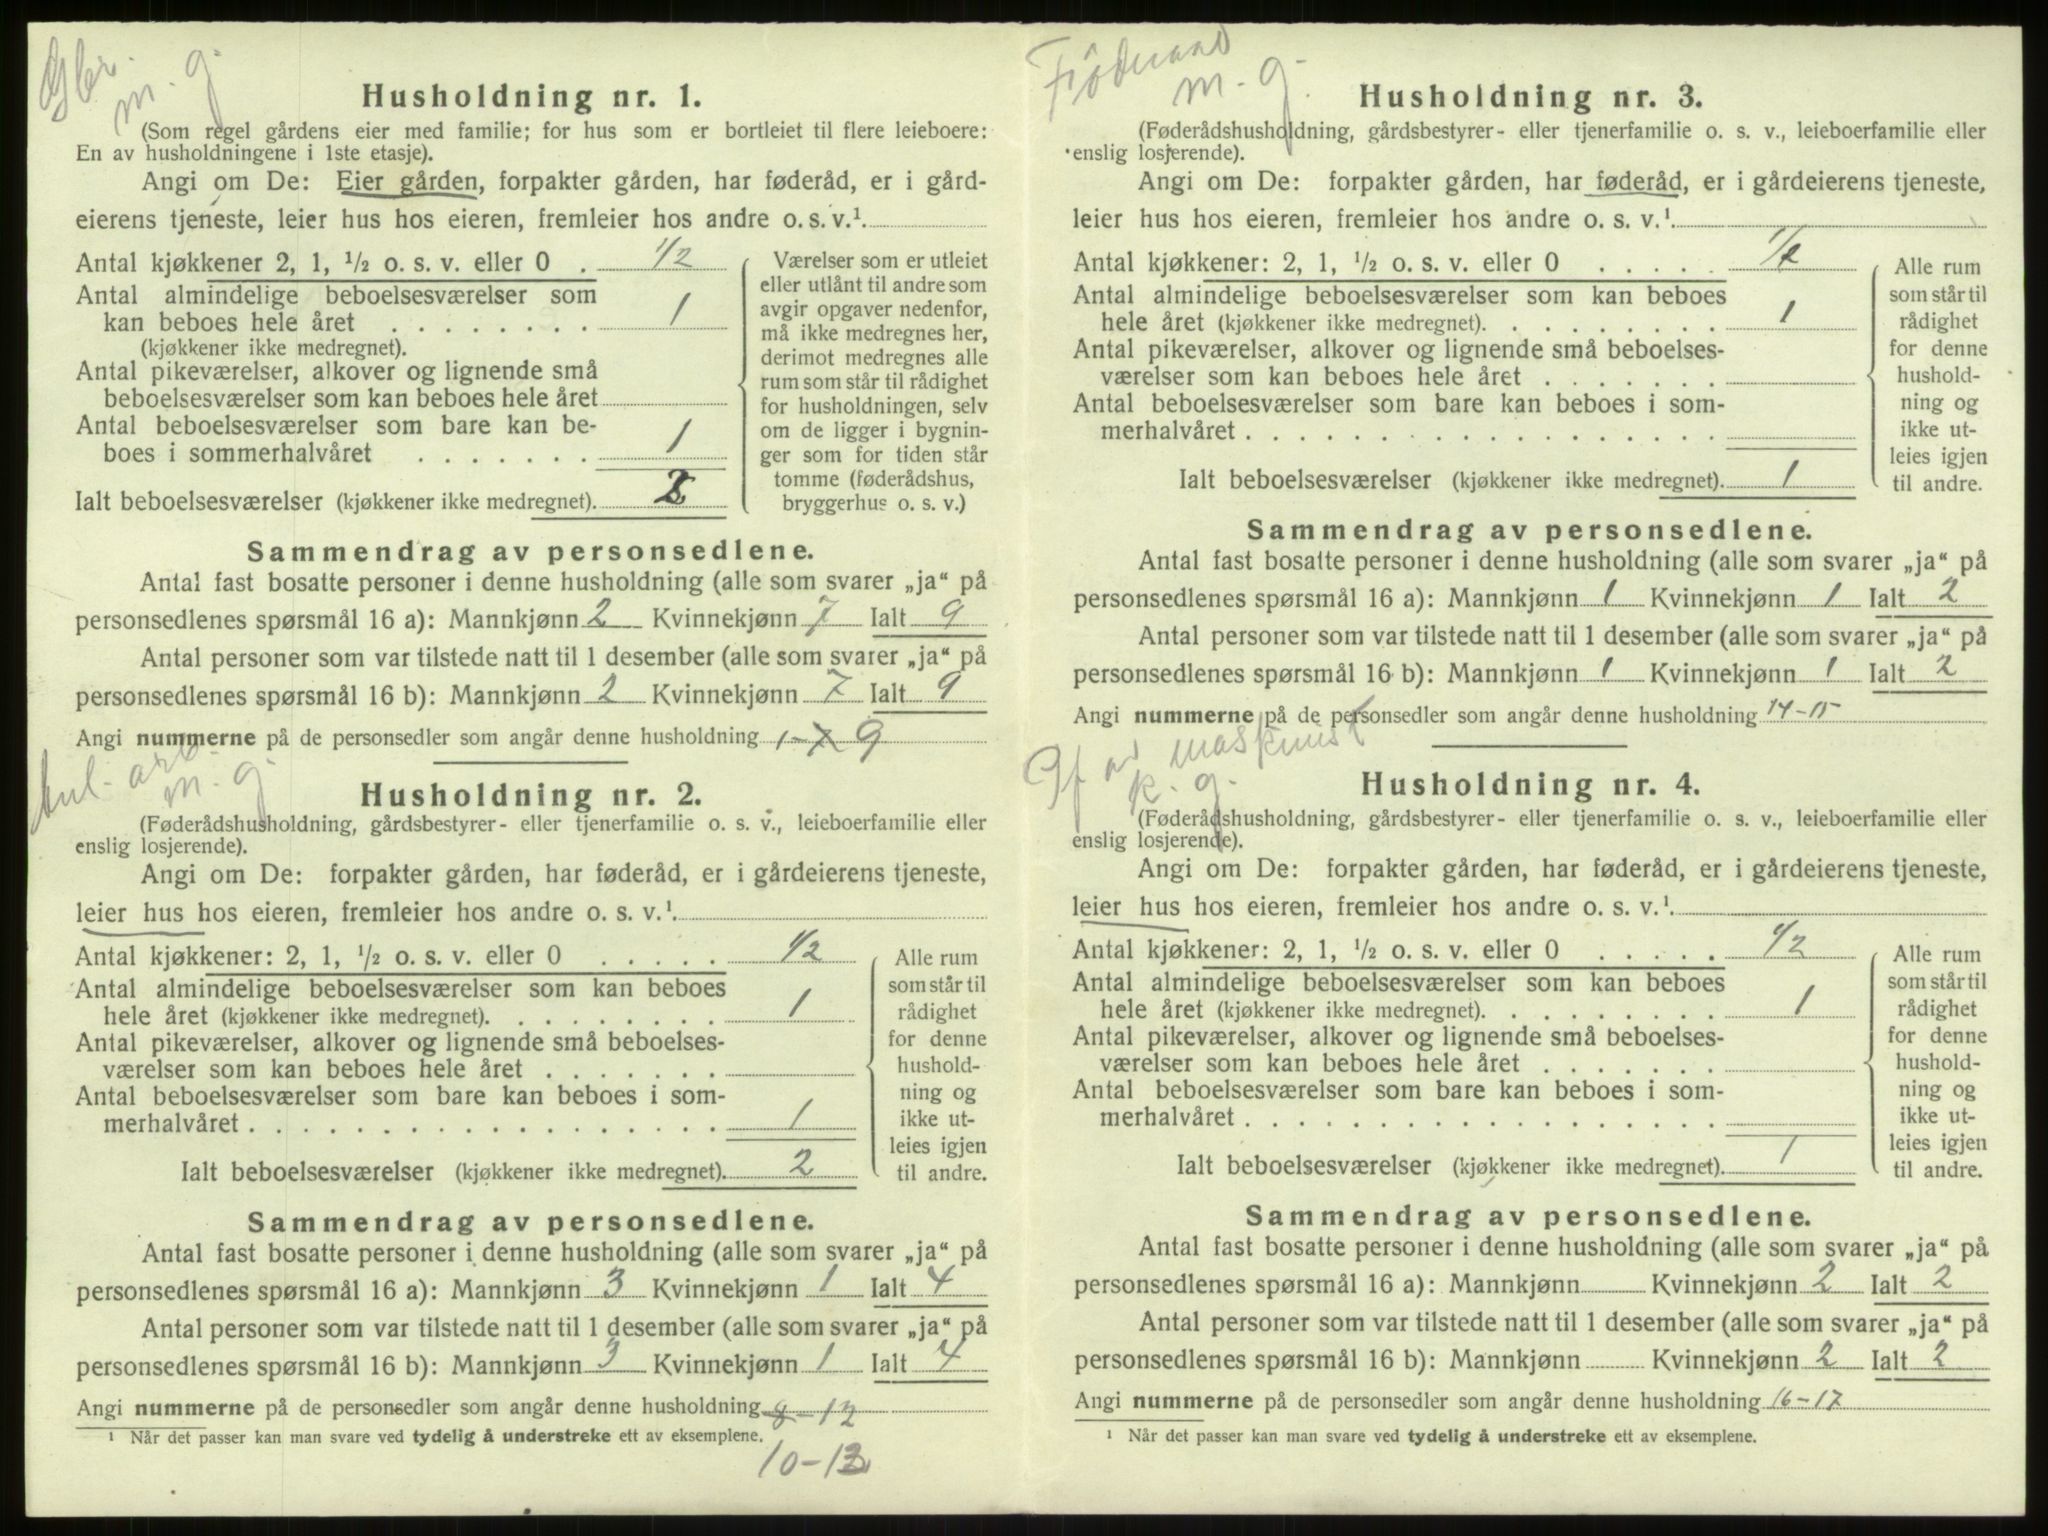 Gbr.
m. g.
Husholdning nr. 1.
(Som regel gårdens eier med familie; for hus som er bortleiet til flere leieboere:
En av husholdningene i 1ste etasje).
Angi om De: Eier gården, forpakter gården, har føderåd, er i gård-
eierens tjeneste, leier hus hos eieren, fremleier hos andre o. s. v.¹
Antal kjøkkener 2, 1, ½ o. s. v. eller 0 . 1/2
Antal almindelige beboelsesværelser som
kan beboes hele året . . . . . . . . 1
(kjøkkener ikke medregnet).
Antal pikeværelser, alkover og lignende små
beboelsesværelser som kan beboes hele året
Antal beboelsesværelser som bare kan be-
boes i sommerhalvåret . . . . . . . 1
Ialt beboelsesværelser (kjøkkener ikke medregnet). 2
Værelser som er utleiet
eller utlånt til andre som
avgir opgaver nedenfor,
må ikke medregnes her,
derimot medregnes alle
rum som står til rådighet
for husholdningen, selv
om de ligger i bygnin-
ger som for tiden står
tomme (føderådshus,
bryggerhus o. s. v.)
Sammendrag av personsedlene.
Antal fast bosatte personer i denne husholdning (alle som svarer „ja“ på
personsedlenes spørsmål 16 a): Mannkjønn 2 Kvinnekjønn 7 Ialt 9
Antal personer som var tilstede natt til 1 desember (alle som svarer „ja“ på
personsedlenes spørsmål 16 b): Mannkjønn 2 Kvinnekjønn 7 Ialt 9
Angi nummerne på de personsedler som angår denne husholdning 1-7 9
arb.
m. g.
Husholdning nr. 2.
(Føderådshusholdning, gårdsbestyrer- eller tjenerfamilie o. s. v., leieboerfamilie eller
enslig losjerende).
Angi om De: forpakter gården, har føderåd, er i gårdeierens tjeneste,
leier hus hos eieren, fremleier hos andre o. s. v.¹
Antal kjøkkener: 2, 1, ½ o. s. v. eller 0 . . . . . 1/2
Antal almindelige beboelsesværelser som kan beboes
hele året (kjøkkener ikke medregnet). . . . . . . . . 1
Antal pikeværelser, alkover og lignende små beboelses-
værelser som kan beboes hele året . . . . . . .
Antal beboelsesværelser som bare kan beboes i som-
merhalvåret . . . . . . . . . . . . . . . . . . 1
Ialt beboelsesværelser (kjøkkener ikke medregnet). 2
Alle rum
som står til
rådighet
for denne
hushold-
ning og
ikke ut-
leies igjen
til andre.
Sammendrag av personsedlene.
Antal fast bosatte personer i denne husholdning (alle som svarer „ja“ på
personsedlenes spørsmål 16 a): Mannkjønn 3 Kvinnekjønn 1 Ialt 4
Antal personer som var tilstede natt til 1 desember (alle som svarer „ja“ på
personsedlenes spørsmål 16 b): Mannkjønn 3 Kvinnekjønn 1 Ialt 4
Angi nummerne på de personsedler som angår denne husholdning 8-12
¹ Når det passer kan man svare ved tydelig å understreke ett av eksemplene.
10-13
Føderaad
m. g.
Husholdning nr. 3.
(Føderådshusholdning, gårdsbestyrer- eller tjenerfamilie o. s. v., leieboerfamilie eller
enslig losjerende).
Angi om De: forpakter gården, har føderåd, er i gårdeierens tjeneste,
leier hus hos eieren, fremleier hos andre o. s. v.¹
Antal kjøkkener: 2, 1, ½ o. s. v. eller 0 . . . . . 1/2
Antal almindelige beboelsesværelser som kan beboes
hele året (kjøkkener ikke medregnet). . . . . . . . . 1
Antal pikeværelser, alkover og lignende små beboelses-
værelser som kan beboes hele året . . . . . . .
Antal beboelsesværelser som bare kan beboes i som-
merhalvåret . . . . . . . . . . . . . . . . . .
Ialt beboelsesværelser (kjøkkener ikke medregnet). 1
Alle rum
som står til
rådighet
for denne
hushold-
ning og
ikke ut-
leies igjen
til andre.
Sammendrag av personsedlene.
Antal fast bosatte personer i denne husholdning (alle som svarer „ja“ på
personsedlenes spørsmål 16 a): Mannkjønn 1 Kvinnekjønn 1 Ialt 2
Antal personer som var tilstede natt til 1 desember (alle som svarer „ja“ på
personsedlenes spørsmål 16 b): Mannkjønn 1 Kvinnekjønn 1 Ialt 2
Angi nummerne på de personsedler som angår denne husholdning 14-15
Gf av maskinist
k. g.
Husholdning nr. 4.
(Føderådshusholdning, gårdsbestyrer- eller tjenerfamilie o. s. v., leieboerfamilie eller
enslig losjerende).
Angi om De: forpakter gården, har føderåd, er i gårdeierens tjeneste,
leier hus hos eieren, fremleier hos andre o. s. v.¹
Antal kjøkkener: 2, 1, ½ o. s. v. eller 0 . . . . . 1/2
Antal almindelige beboelsesværelser som kan beboes
hele året (kjøkkener ikke medregnet). . . . . . . . . 1
Antal pikeværelser, alkover og lignende små beboelses-
værelser som kan beboes hele året . . . . . . .
Antal beboelsesværelser som bare kan beboes i som-
merhalvåret . . . . . . . . . . . . . . . . . .
Ialt beboelsesværelser (kjøkkener ikke medregnet). 1
Alle rum
som står til
rådighet
for denne
hushold-
ning og
ikke ut-
leies igjen
til andre.
Sammendrag av personsedlene.
Antal fast bosatte personer i denne husholdning (alle som svarer „ja“ på
personsedlenes spørsmål 16 a): Mannkjønn Kvinnekjønn 2 Ialt 2
Antal personer som var tilstede natt til 1 desember (alle som svarer „ja“ på
personsedlenes spørsmål 16 b): Mannkjønn Kvinnekjønn 2 Ialt 2
Angi nummerne på de personsedler som angår denne husholdning 16-17
¹ Når det passer kan man svare ved tydelig å understreke ett av eksemplene.